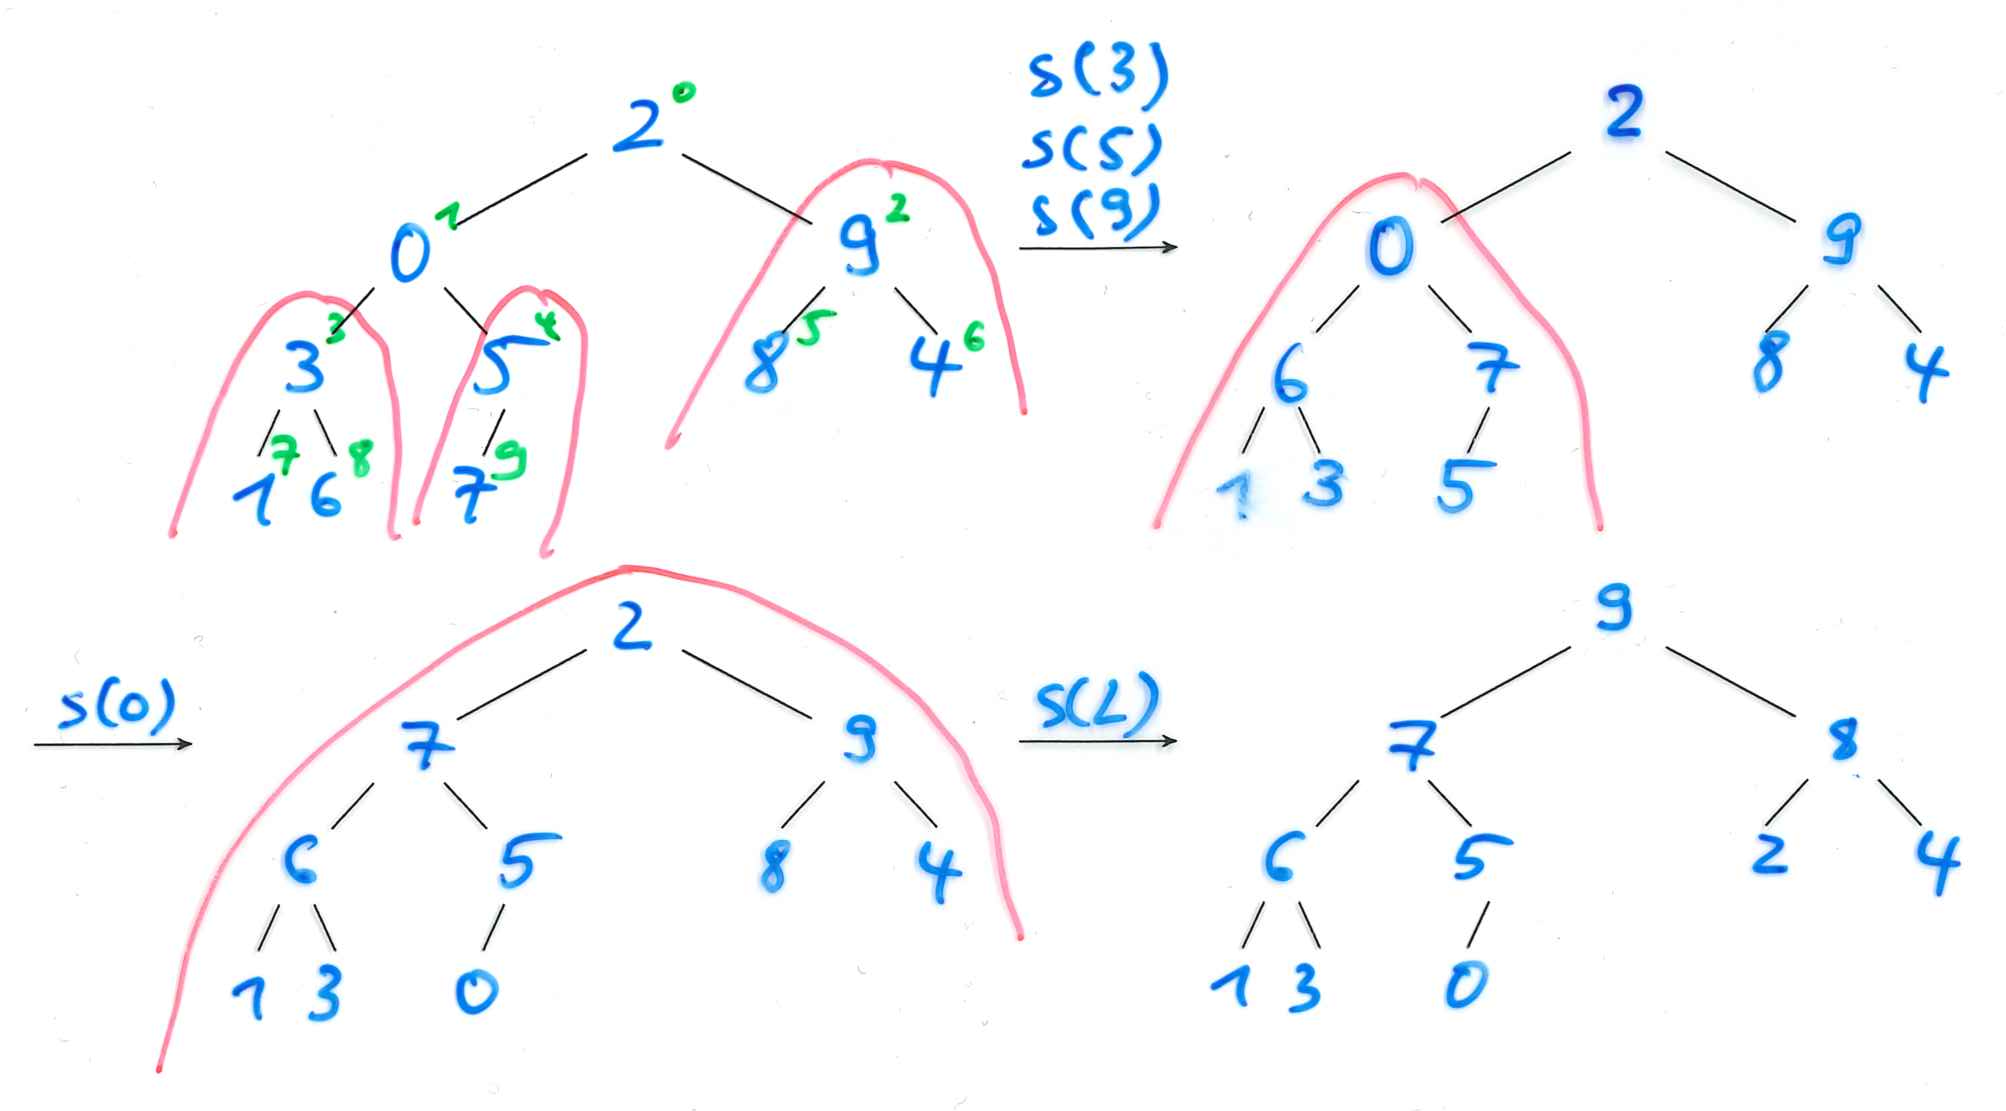 2 0
0 1 9 2
3 3 5 4 8 5 4 6
1 7 6 8 7 9
s(3)
s(5)
s(9)
2
0 9
6 7 8 4
1 3 5
s(0)
2
7 9
6 5 8 4
1 3 0
s(2)
9
7 8
6 5 2 4
1 3 0